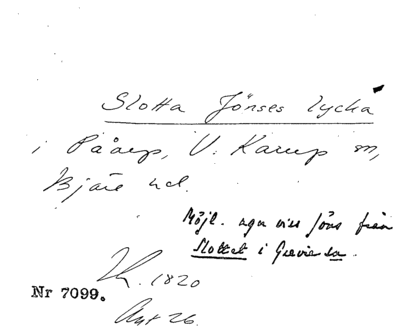 Slotta Jönses lycka
i Påarp, V. Karup sn,
Bjäre hd.
Möjl. en viss Jöns från
Slottet i Grevie sn.
1820
Nr 7099.
Ant 26.